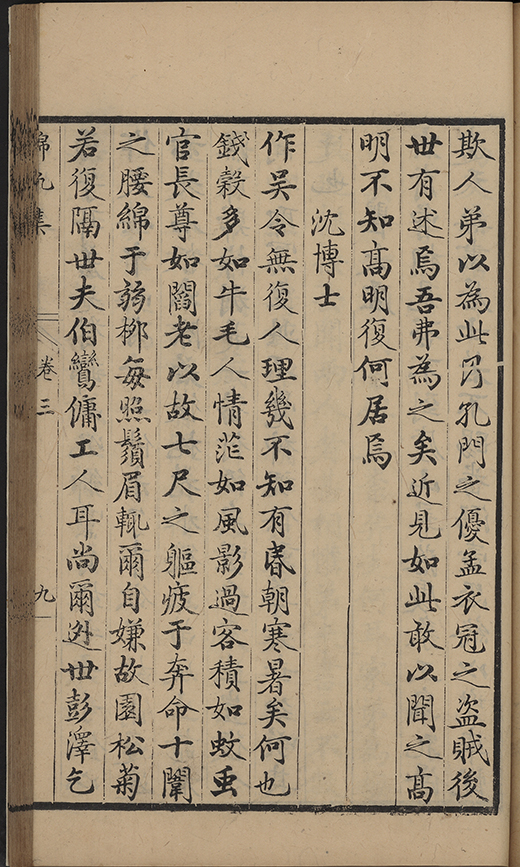 欺人弟以為此乃孔門之優孟衣冠之盜賊後
世有述焉吾弗為之矣近見如此敢以聞之高
明不知高明復何居焉
沈博士
作吳令無復人理幾不知有昏朝寒暑矣何也
錢穀多如牛毛人情茫如風影過客積如蚊虫
官長尊如閻老以故七尺之軀疲于奔命十闈
之腰綿于弱栁每照鬚眉輒爾自嫌故園松菊
若復隔世夫伯鸞傭工人耳尚爾迯世彭澤乞
錦凢集 卷三 九